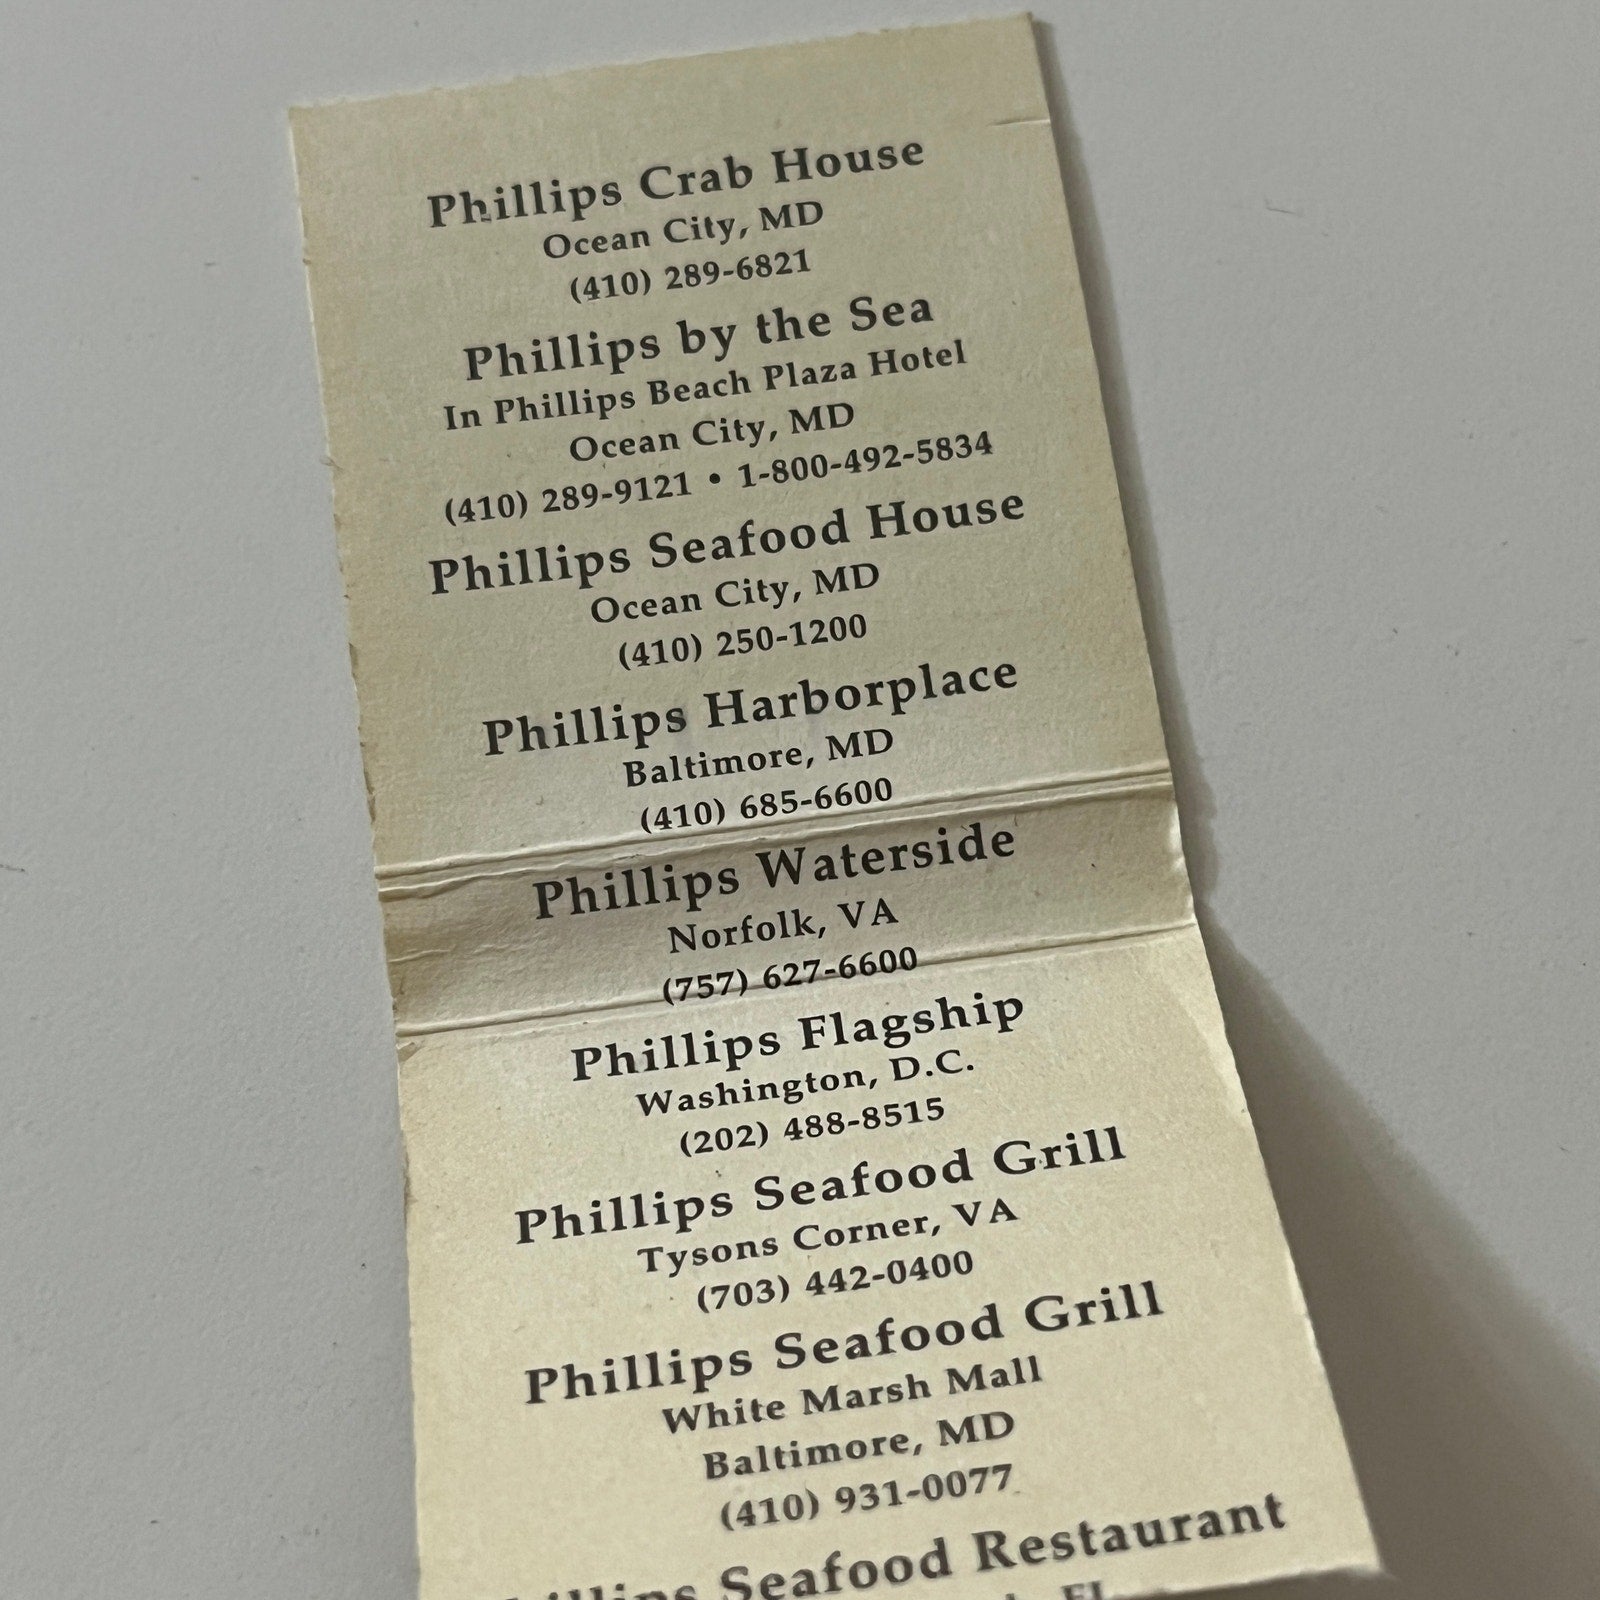 Phillips Crab House
Ocean City, MD
(410) 289-6821
Phillips by the Sea
In Phillips Beach Plaza Hotel
Ocean City, MD
(410) 289-9121 • 1-800-492-5834
Phillips Seafood House
Ocean City, MD
(410) 250-1200
Phillips Harborplace
Baltimore, MD
(410) 685-6600
Phillips Waterside
Norfolk, VA
(757) 627-6600
Phillips Flagship
Washington, D.C.
(202) 488-8515
Phillips Seafood Grill
Tysons Corner, VA
(703) 442-0400
Phillips Seafood Grill
White Marsh Mall
Baltimore, MD
(410) 931-0077
Phillips Seafood Restaurant
FL